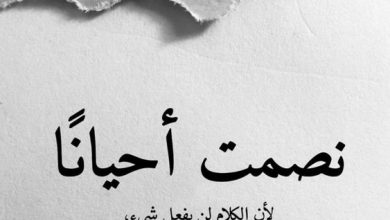 نصمت أحيانًا
لأن الكلام لن يفعل شيء،